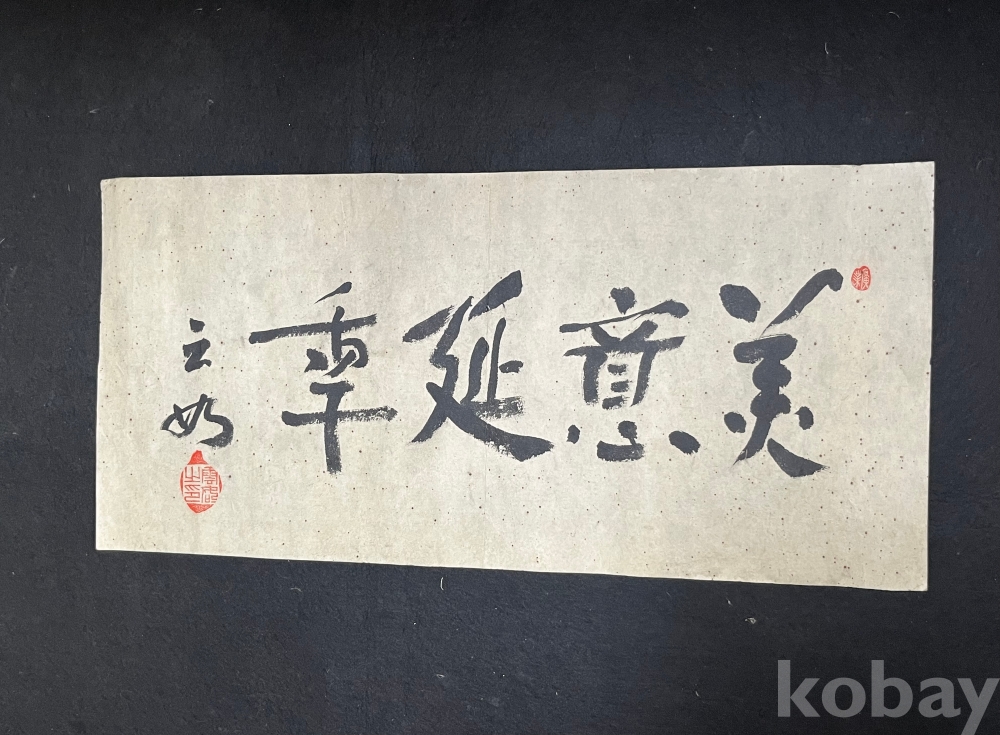 美意延年
云
kobay